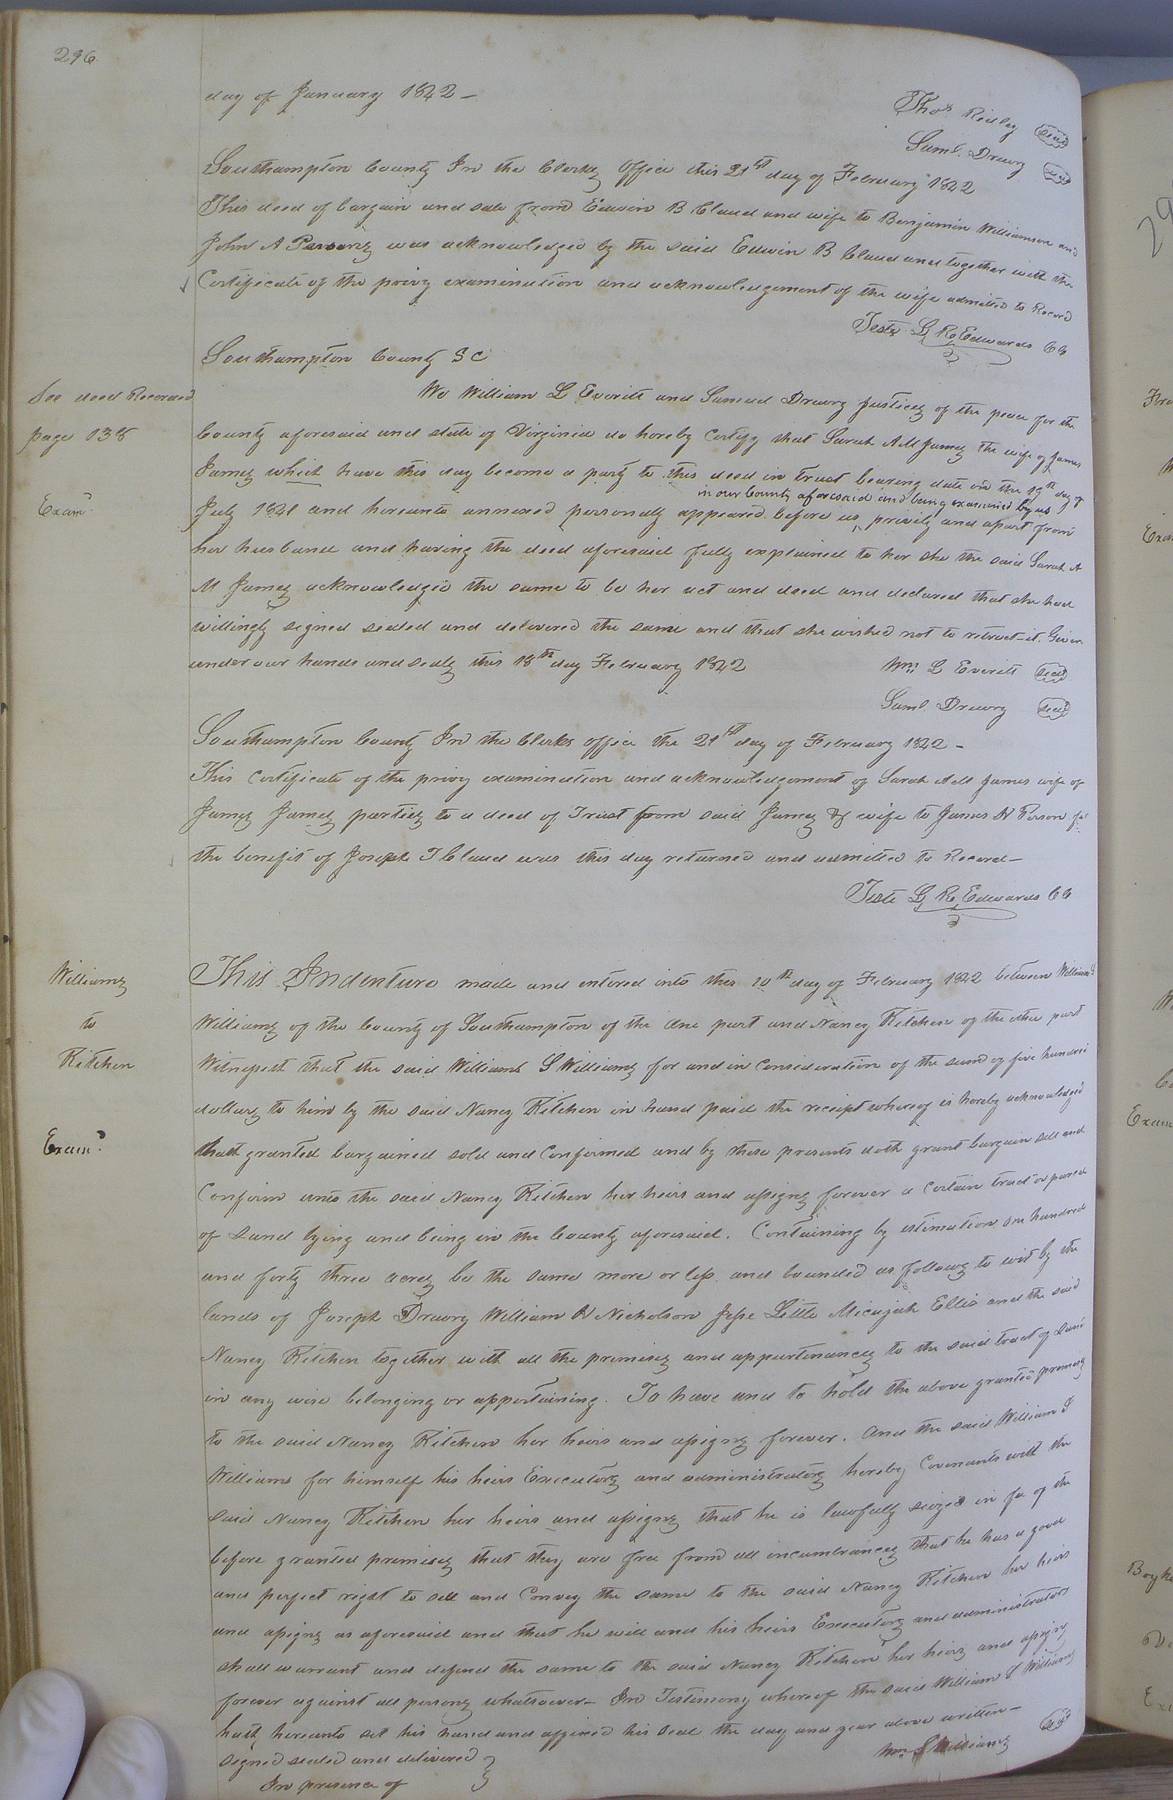 296
day of January 1842 —
Thos Ridley seal
Saml. Drewry seal
Southampton County In the Clerks Office this 21st day of February 1842
This deed of bargain and sale from Edwin B Claud and wife to Benjamin Williamson and
John A Parsons was acknowledged by the said Edwin B Claud and together with the
Certificate of the privy examination and acknowledgement of the wife admitted to Record
Teste L R Edwards CC
Southampton County SC
See deed Recorded
page 138
Examd
We William L Everitt and Samuel Drewry Justices of the peace for the
County aforesaid and state of Virginia do hereby Certify that Sarah A M James the wife of James
James which have this day become a party to this deed in trust bearing date on the 19th day of
in our County aforesaid and being examined by us
July 1841 and hereunto annexed personally appeared before us, privily and apart from
her husband and having the deed aforesaid fully explained to her she the said Sarah A
M James acknowledged the same to be her act and deed and declared that she had
willingly signed sealed and delivered the same and that she wished not to retract it. Given
under our hands and seals this 18th day February 1842
Wm L Everitt seal
Saml. Drewry seal
Southampton County In the Clerks office the 21st day of February 1842 —
This Certificate of the privy examination and acknowledgement of Sarah A M James wife of
James James parties to a deed of Trust from said James & wife to James H Person for
the benefit of Joseph T Claud was this day returned and admitted to Record —
Teste L R Edwards CC
Williams
to
Kitchen
Examd
This Indenture made and entered into this 10th day of February 1842 between William S
Williams of the County of Southampton of the one part and Nancy Kitchen of the other part
Witnesseth that the said William S Williams for and in Consideration of the sum of five hundred
dollars to him by the said Nancy Kitchen in hand paid the receipt whereof is hereby acknowledged
hath granted bargained sold and Confirmed and by these presents doth grant bargain sell and
Confirm unto the said Nancy Kitchen her heirs and assigns forever a Certain tract or parcel
of Land lying and being in the County aforesaid. Containing by estimation one hundred
and forty three acres be the same more or less and bounded as follows to wit by the
lands of Joseph Drewry William H Nicholson Jesse Little Micajah Ellis and the said
Nancy Kitchen together with all the premises and appurtenances to the said tract of Land
in any wise belonging or appertaining. To have and to hold the above granted premises
to the said Nancy Kitchen her heirs and assigns forever. And the said William S
Williams for himself his heirs Executors and administrators hereby Covenants with the
said Nancy Kitchen her heirs and assigns that he is lawfully seized in fee of the
before granted premises that they are free from all incumbrances that he has a good
and perfect right to sell and Convey the same to the said Nancy Kitchen her heirs
and assigns as aforesaid and that he will and his heirs Executors and administrators
shall warrant and defend the same to the said Nancy Kitchen her heirs and assigns
forever against all persons whatsoever — In Testimony whereof the said William S Williams
hath hereunto set his hand and affixed his seal the day and year above written —
Signed sealed and delivered
In presence of
Wm S Williams seal